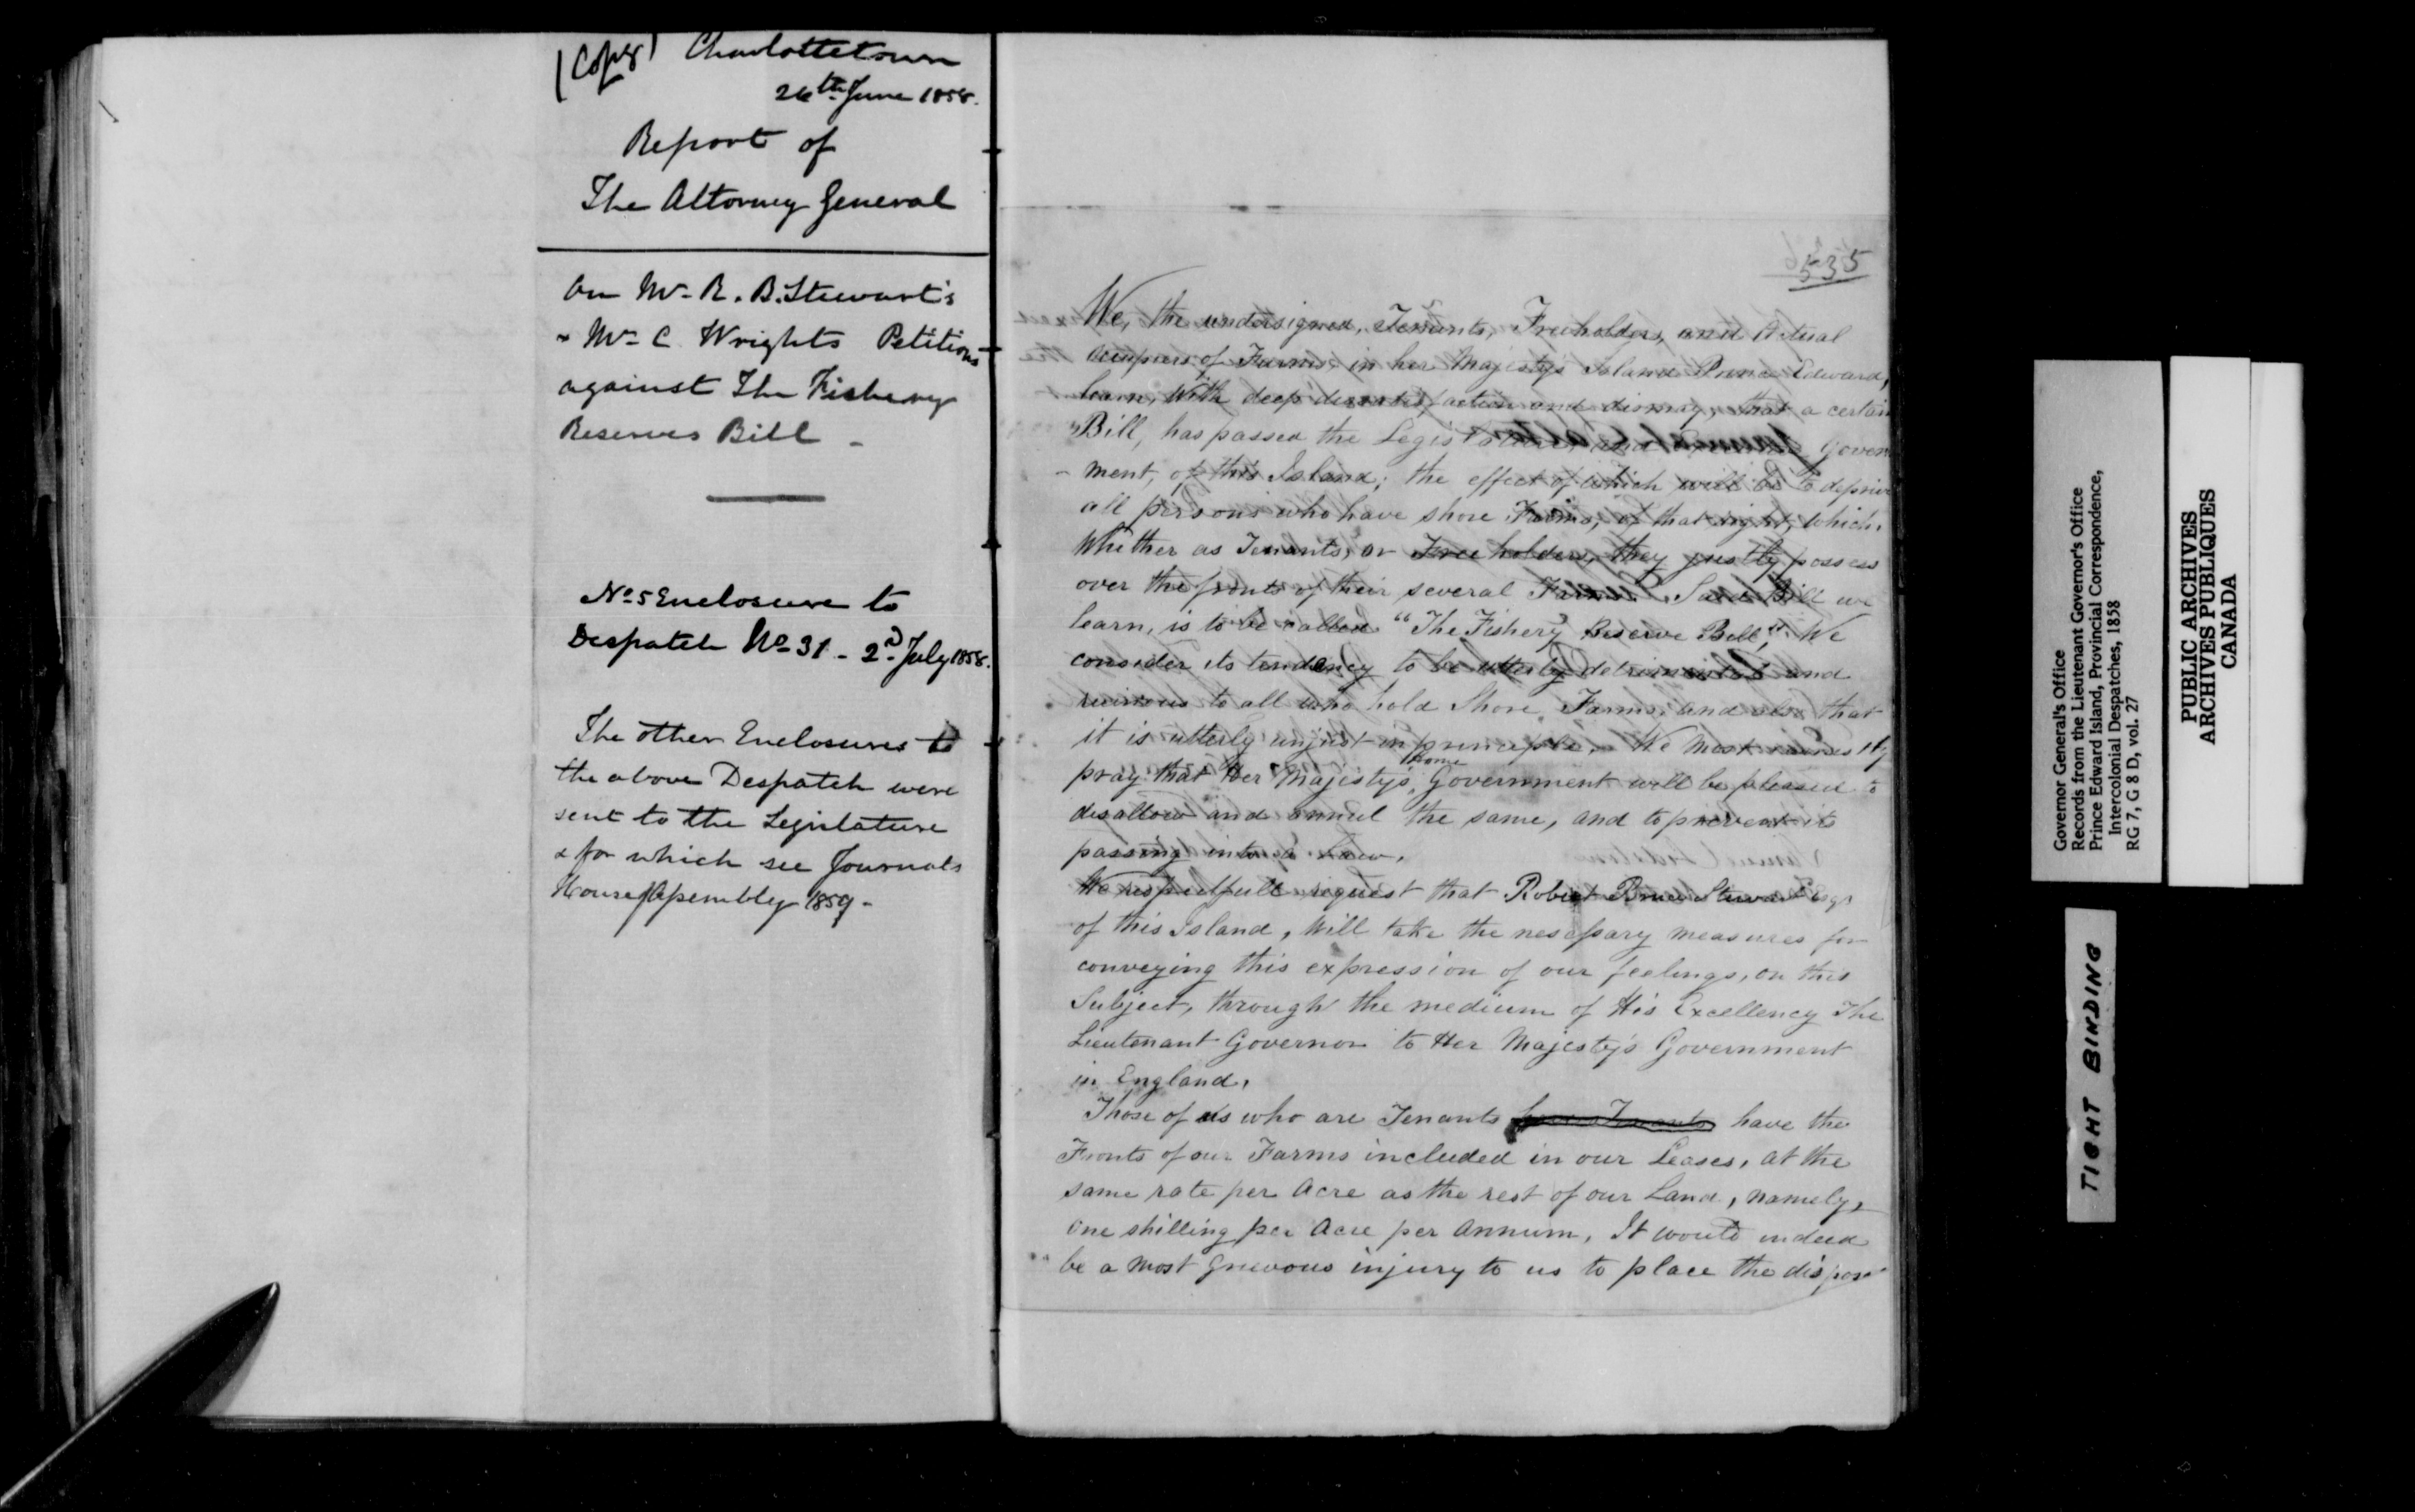 (Copy) Charlottetown
26th June 1858.
Report of
The Attorney General
On Mr R. B. Stewart's
& Mr C Wrights Petitions
against The Fishery
Reserves Bill -
No 5 Enclosure to
Despatch No 31 - 2nd July 1858.
The other Enclosures to
the above Despatch were
sent to the Legislature
& for which see Journals
House of Assembly 1859 -
535
We, the undersigned, Tenants, Freeholders, and Actual
occupiers of Farms in her Majesty's Island Prince Edward,
learn, With deep dissatisfaction and dismay, that a certain
Bill, has passed the Legislature, and Govern
- ment, of this Island; the effect of which will be to deprive
all persons who have shore Farms, of that right, which,
Whether as Tenants, or Freeholders, they justly possess
over the fronts of their several Farms. Said Bill we
learn, is to be called "The Fishery Reserve Bill," We
consider its tendency to be utterly detrimental and
ruinous to all who hold Shore Farms, and also that
it is utterly unjust in principle. We most earnestly
pray that Her Majesty's Home Government will be pleased to
disallow and annul the same, and to prevent its
passing into a Law.
We respectfully request that Robert Bruce Stewart Esqr
of this Island, Will take the nescessary measures for
conveying this expression of our feelings, on this
Subject, through the medium of His Excellency The
Lieutenant Governor to Her Majesty's Government
in England.
Those of us who are Tenants have the
Fronts of our Farms included in our Leases, at the
same rate per Acre as the rest of our Land, namely,
One shilling per Acre per Annum, It would indeed
be a most Grievous injury to us to place the dispos
Governor General's Office
Records from the Lieutenant Governor's Office
Prince Edward Island, Provincial Correspondence,
Intercolonial Despatches, 1858
RG 7, G 8 D, vol. 27
PUBLIC ARCHIVES
ARCHIVES PUBLIQUES
CANADA
TIGHT BINDING